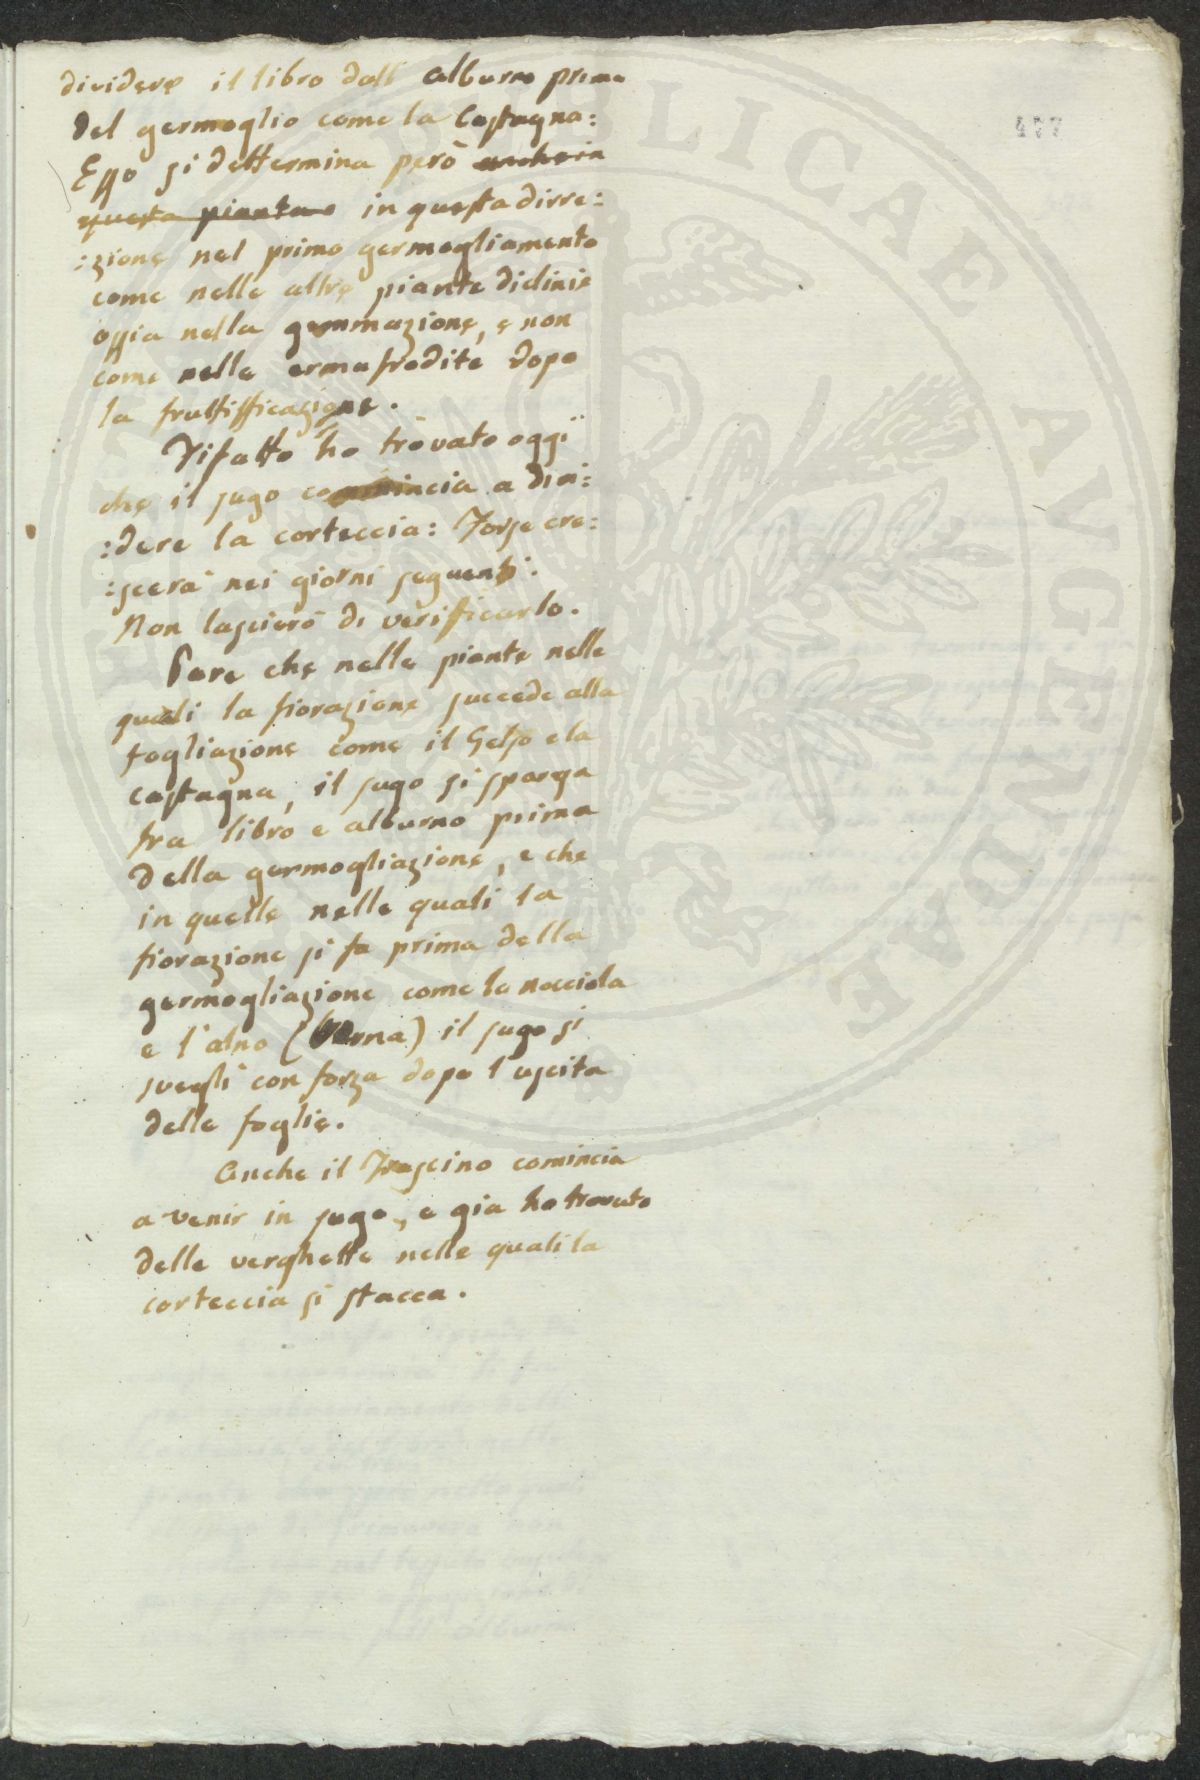 477
dividere il libro dall' alburno prima
del germoglio come la Castagna:
Esso si dettermina però anche in
questa pianta in questa dirre:
:zione nel primo germogliamento
come nelle altre piante diclinie
ossia nella gemmazione, e non
come nelle ermafrodite dopo
la fruttifficazione.
Difatto ho trovato oggi
che il sugo commincia a divi:
:dere la corteccia: Forse cre:
:scerà nei giorni seguenti.
Non lascierò di verificarlo.
Pare che nelle piante nelle
quali la fiorazione succede alla
fogliazione come il Gelso e la
castagna, il sugo si sparga
fra libro e alburno prima
della germogliazione, e che
in quelle nelle quali la
fiorazione si fa prima della
germogliazione come la nocciola
e l'alno (Verna) il sugo si
svegli con forza dopo l'uscita
delle foglie.
Anche il Frascino comincia
a venir in sugo, e già ho trovato
delle verghette nelle quali la
corteccia si stacca.